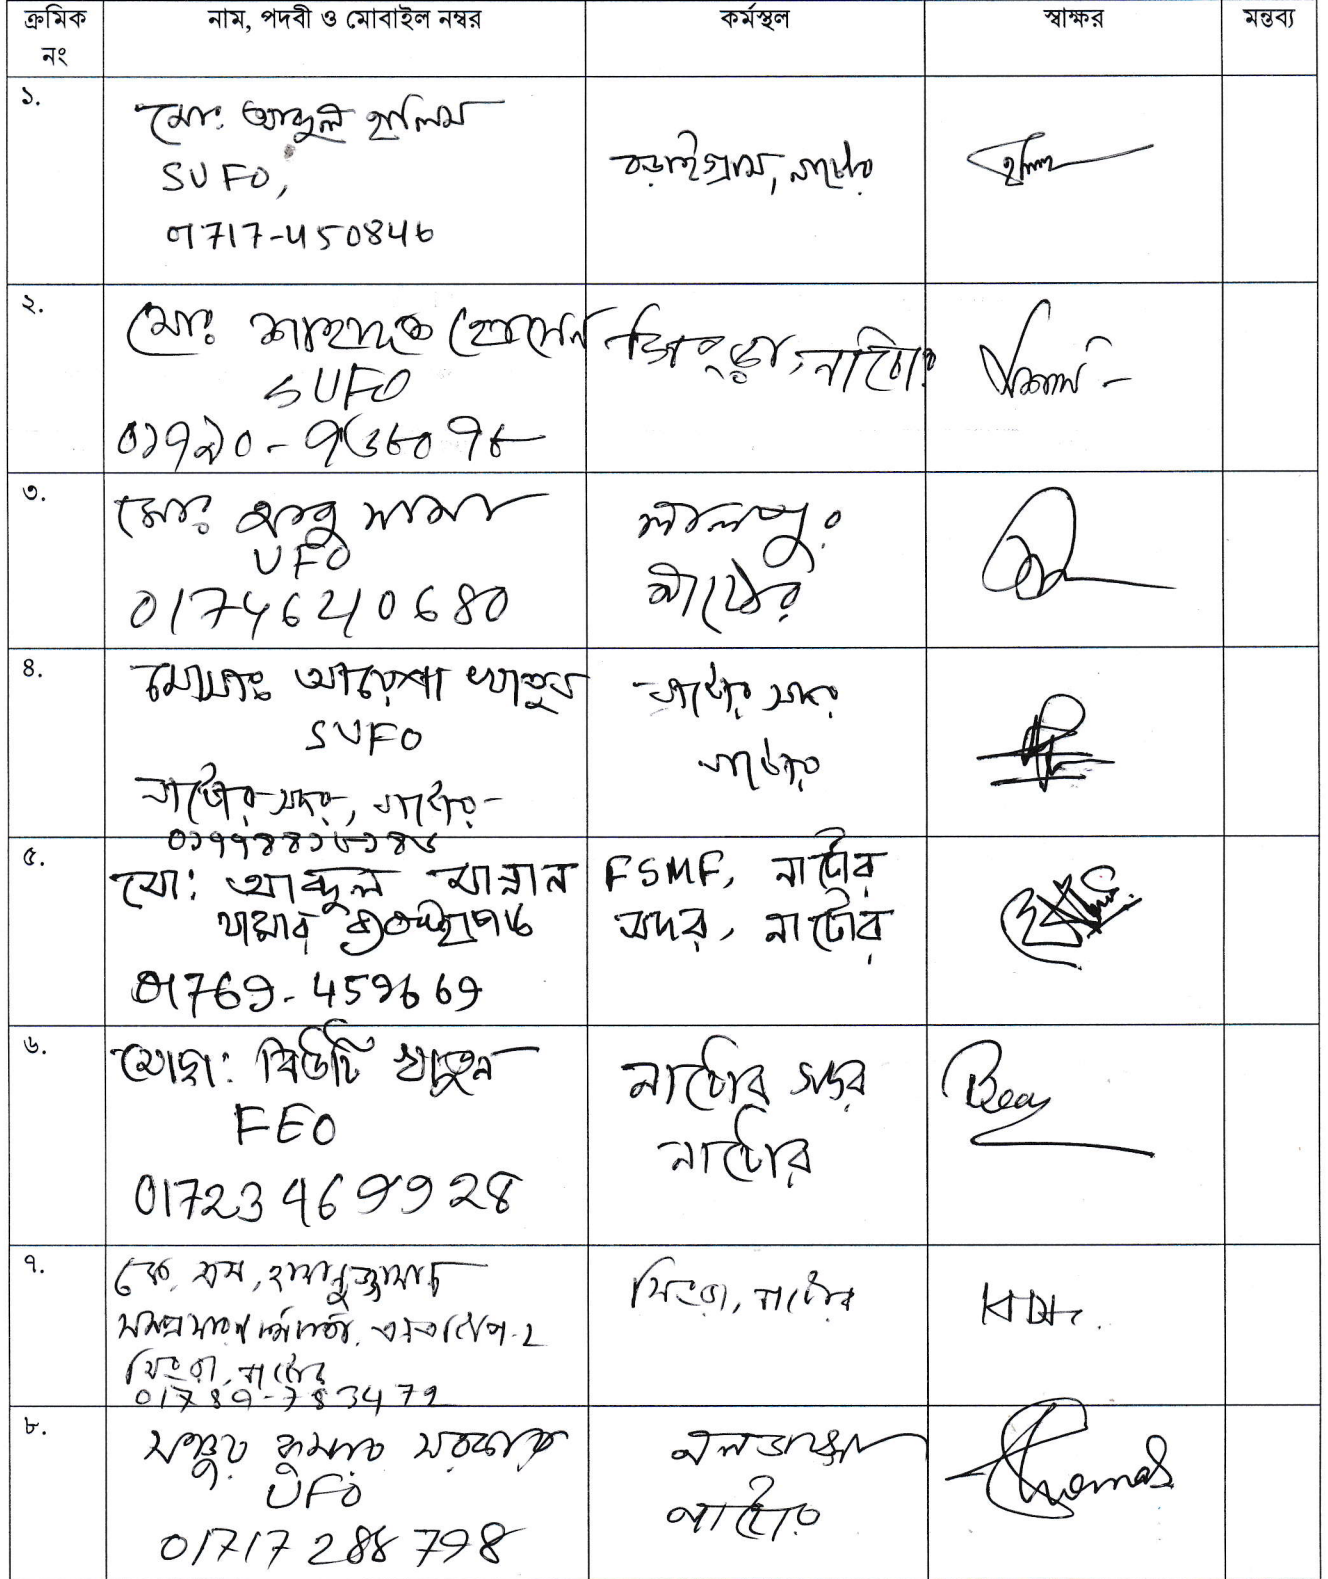 ক্রমিক নং নাম, পদবী ও মোবাইল নম্বর কর্মস্থল স্বাক্ষর মন্তব্য
১.
মোঃ আব্দুল হালিম
SUFO,
01717-450846
বড়াইগ্রাম, নাটোর
২.
মোঃ শাহাদত হোসেন
SUFO
সিংড়া, নাটোর
৩.
মোঃ আবু সামা
UFO
01746240680
লালপুর
নাটোর
৪.
মোসাঃ আয়েশা খাতুন
SUFO
নাটোর সদর, নাটোর
নাটোর সদর
নাটোর
৫.
মো: আব্দুল মান্নান
খামার
01769-459669
FSMF, নাটোর
সদর, নাটোর
৬.
মোছা: বিউটি খাতুন
FEO
01723469928
নাটোর সদর
নাটোর
৭.
কে, এম,
সিংড়া, নাটোর
01789-783472
সিংড়া, নাটোর
৮.
কুমার সরকার
UFO
01717288798
নলডাঙ্গা
নাটোর